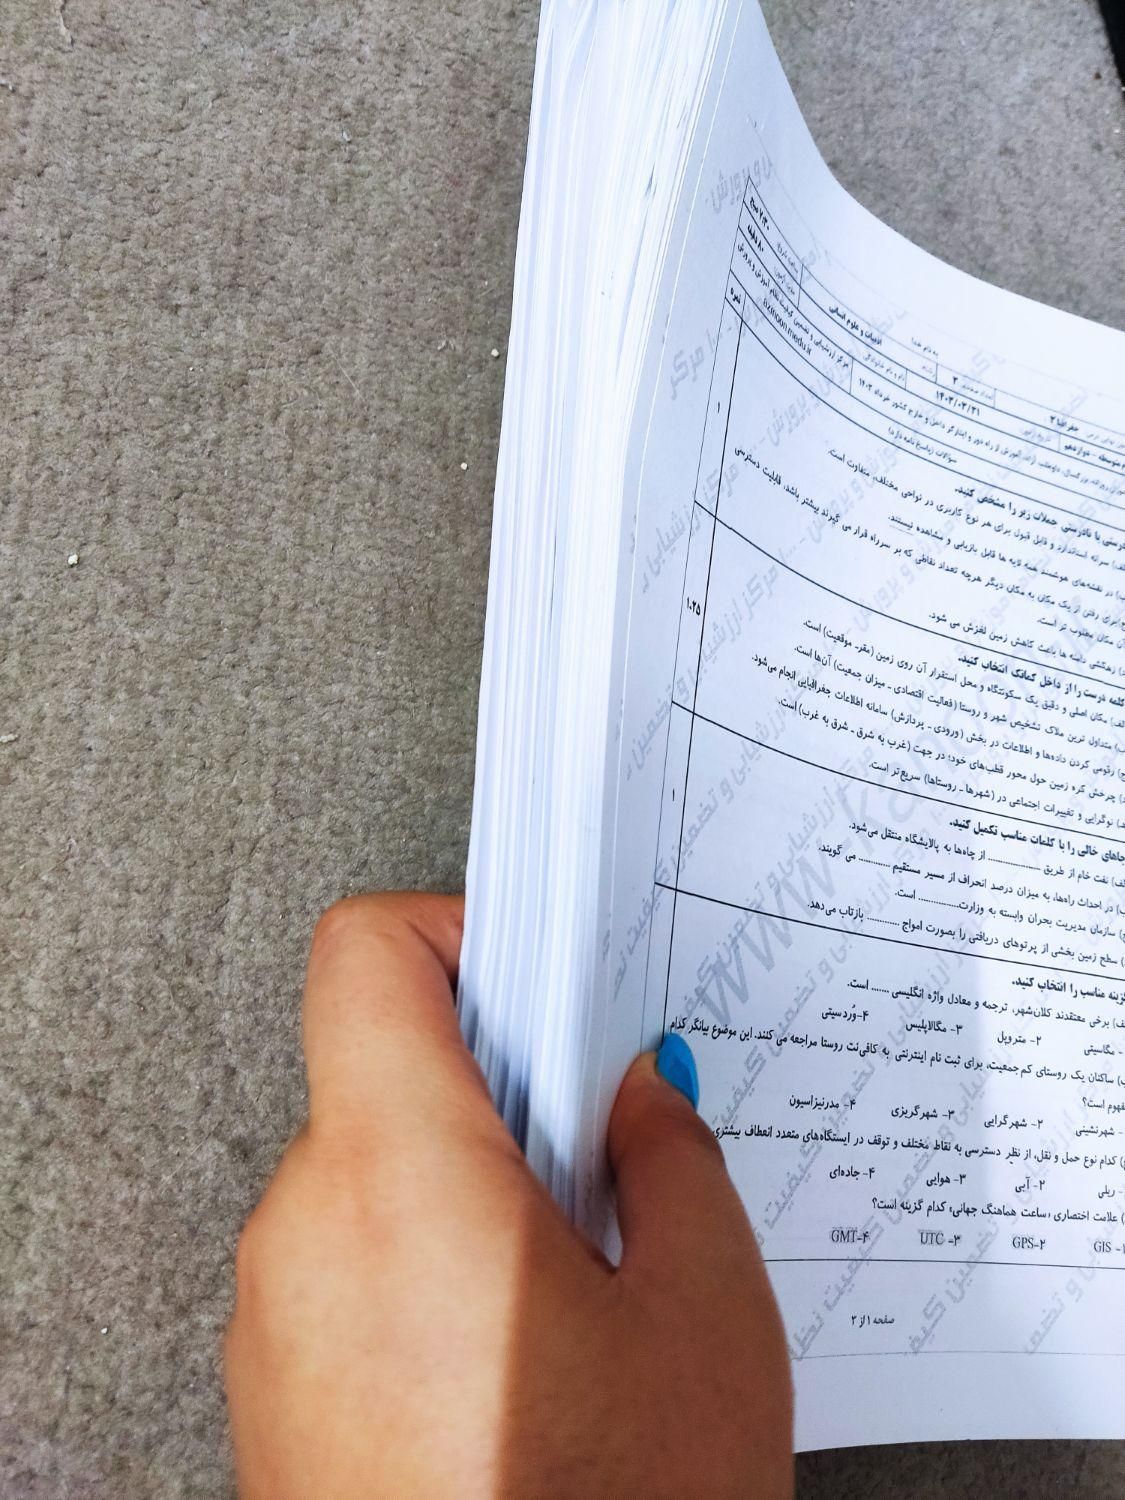 به نام خدا
ساعت شروع: ۷:۳۰ صبح
ادبیات و علوم انسانی
رشته:
تعداد صفحه: ۳
جغرافیا ۳
مدت آزمون: ۸۰ دقیقه
نام و نام خانوادگی
۱۴۰۳/۰۳/۲۱
متوسطه - دوازدهم
مرکز ارزشیابی و تضمین کیفیت نظام آموزش و پرورش
azmoon.medu.ir
روزانه، بزرگسال، داوطلب آزاد، آموزش از راه دور و ایثارگر داخل و خارج کشور خرداد ۱۴۰۳
نمره
سؤالات (پاسخ نامه دارد)
درستی یا نادرستی جملات زیر را مشخص کنید.
۱
سرانه استاندارد و قابل قبول برای هر نوع کاربری در نواحی مختلف، متفاوت است.
در نقشه‌های هوشمند همه لایه ها قابل بازیابی و مشاهده نیستند.
برای رفتن از یک مکان به مکان دیگر هرچه تعداد نقاطی که بر سرراه قرار می گیرند بیشتر باشد، قابلیت دسترسی
آن مکان مطلوب تر است.
زهکشی دامنه ها باعث کاهش زمین لغزش می شود.
کلمه درست را از داخل کمانک انتخاب کنید.
۱.۲۵
الف) مکان اصلی و دقیق یک سکونتگاه و محل استقرار آن روی زمین (مقر- موقعیت) است.
ب) متداول ترین ملاک تشخیص شهر و روستا (فعالیت اقتصادی - میزان جمعیت) آن‌ها است.
ج) رقومی کردن داده‌ها و اطلاعات در بخش (ورودی - پردازش) سامانه اطلاعات جغرافیایی انجام می‌شود.
د) چرخش کره زمین حول محور قطب‌های خود؛ در جهت (غرب به شرق - شرق به غرب) است.
نوگرایی و تغییرات اجتماعی در (شهرها - روستاها) سریع‌تر است.
جاهای خالی را با کلمات مناسب تکمیل کنید.
۱
الف) نفت خام از طریق ................ از چاه‌ها به پالایشگاه منتقل می‌شود.
ب) در احداث راه‌ها، به میزان درصد انحراف از مسیر مستقیم ............ می گویند.
ج) سازمان مدیریت بحران وابسته به وزارت............... است.
سطح زمین بخشی از پرتوهای دریافتی را بصورت امواج ............ بازتاب می‌دهد.
گزینه مناسب را انتخاب کنید.
برخی معتقدند کلان‌شهر، ترجمه و معادل واژه انگلیسی ....... است.
مگاسیتی ۲- متروپل ۳- مگالاپلیس ۴-وُردسیتی
ساکنان یک روستای کم‌جمعیت، برای ثبت نام اینترنتی به کافی‌نت روستا مراجعه می کنند. این موضوع بیانگر کدام
مفهوم است؟
شهرنشینی ۲- شهرگرایی ۳- شهرگریزی ۴- مدرنیزاسیون
کدام نوع حمل و نقل، از نظر دسترسی به نقاط مختلف و توقف در ایستگاه‌های متعدد انعطاف بیشتری
ریلی ۲- آبی ۳- هوایی ۴- جاده‌ای
علامت اختصاری «ساعت هماهنگ جهانی» کدام گزینه است؟
۱- GIS ۲-GPS ۳- UTC ۴-GMT
صفحه ۱ از ۳